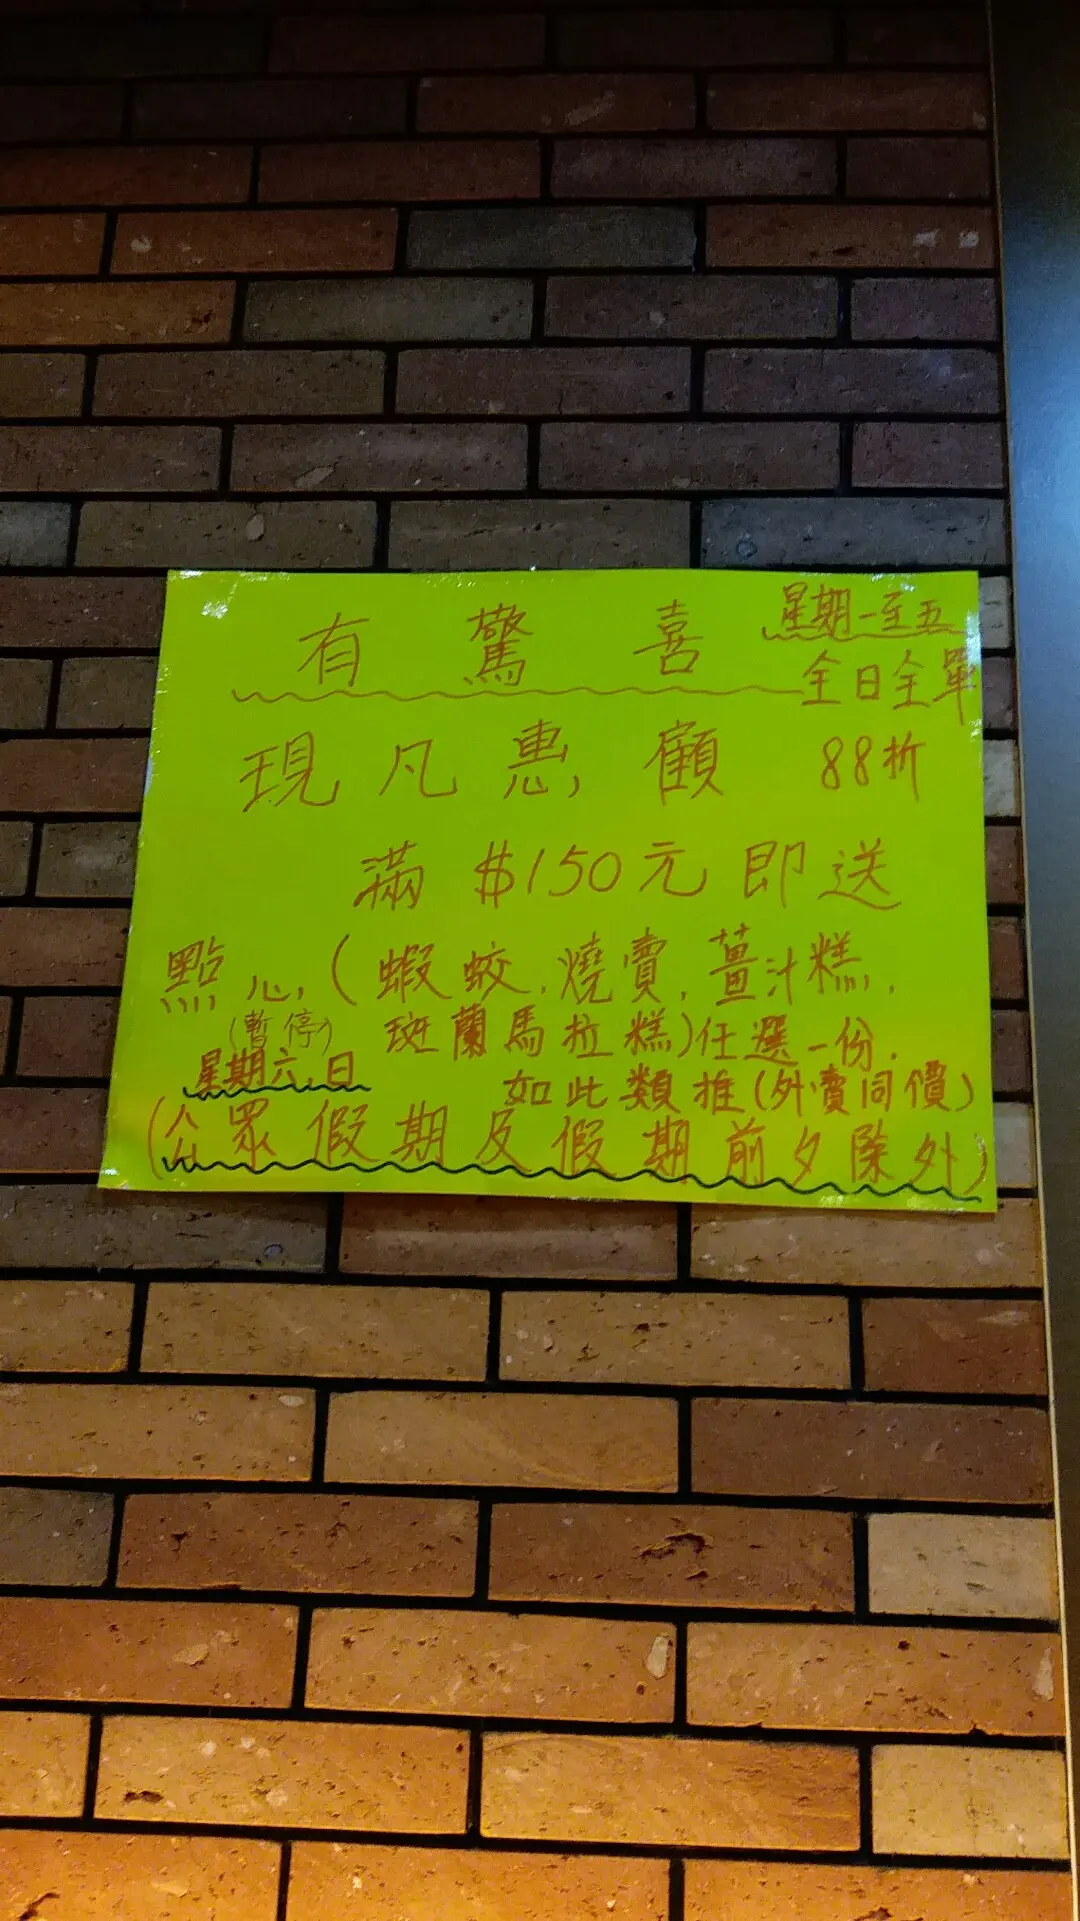 有驚喜
星期一至五
全日全單
88折
現凡惠顧
滿$150元即送
點心(蝦蛟,燒賣,薑汁糕,
斑蘭馬拉糕)任選一份.
如此類推(外賣同價)
(暫停)
星期六,日
(公眾假期及假期前夕除外)